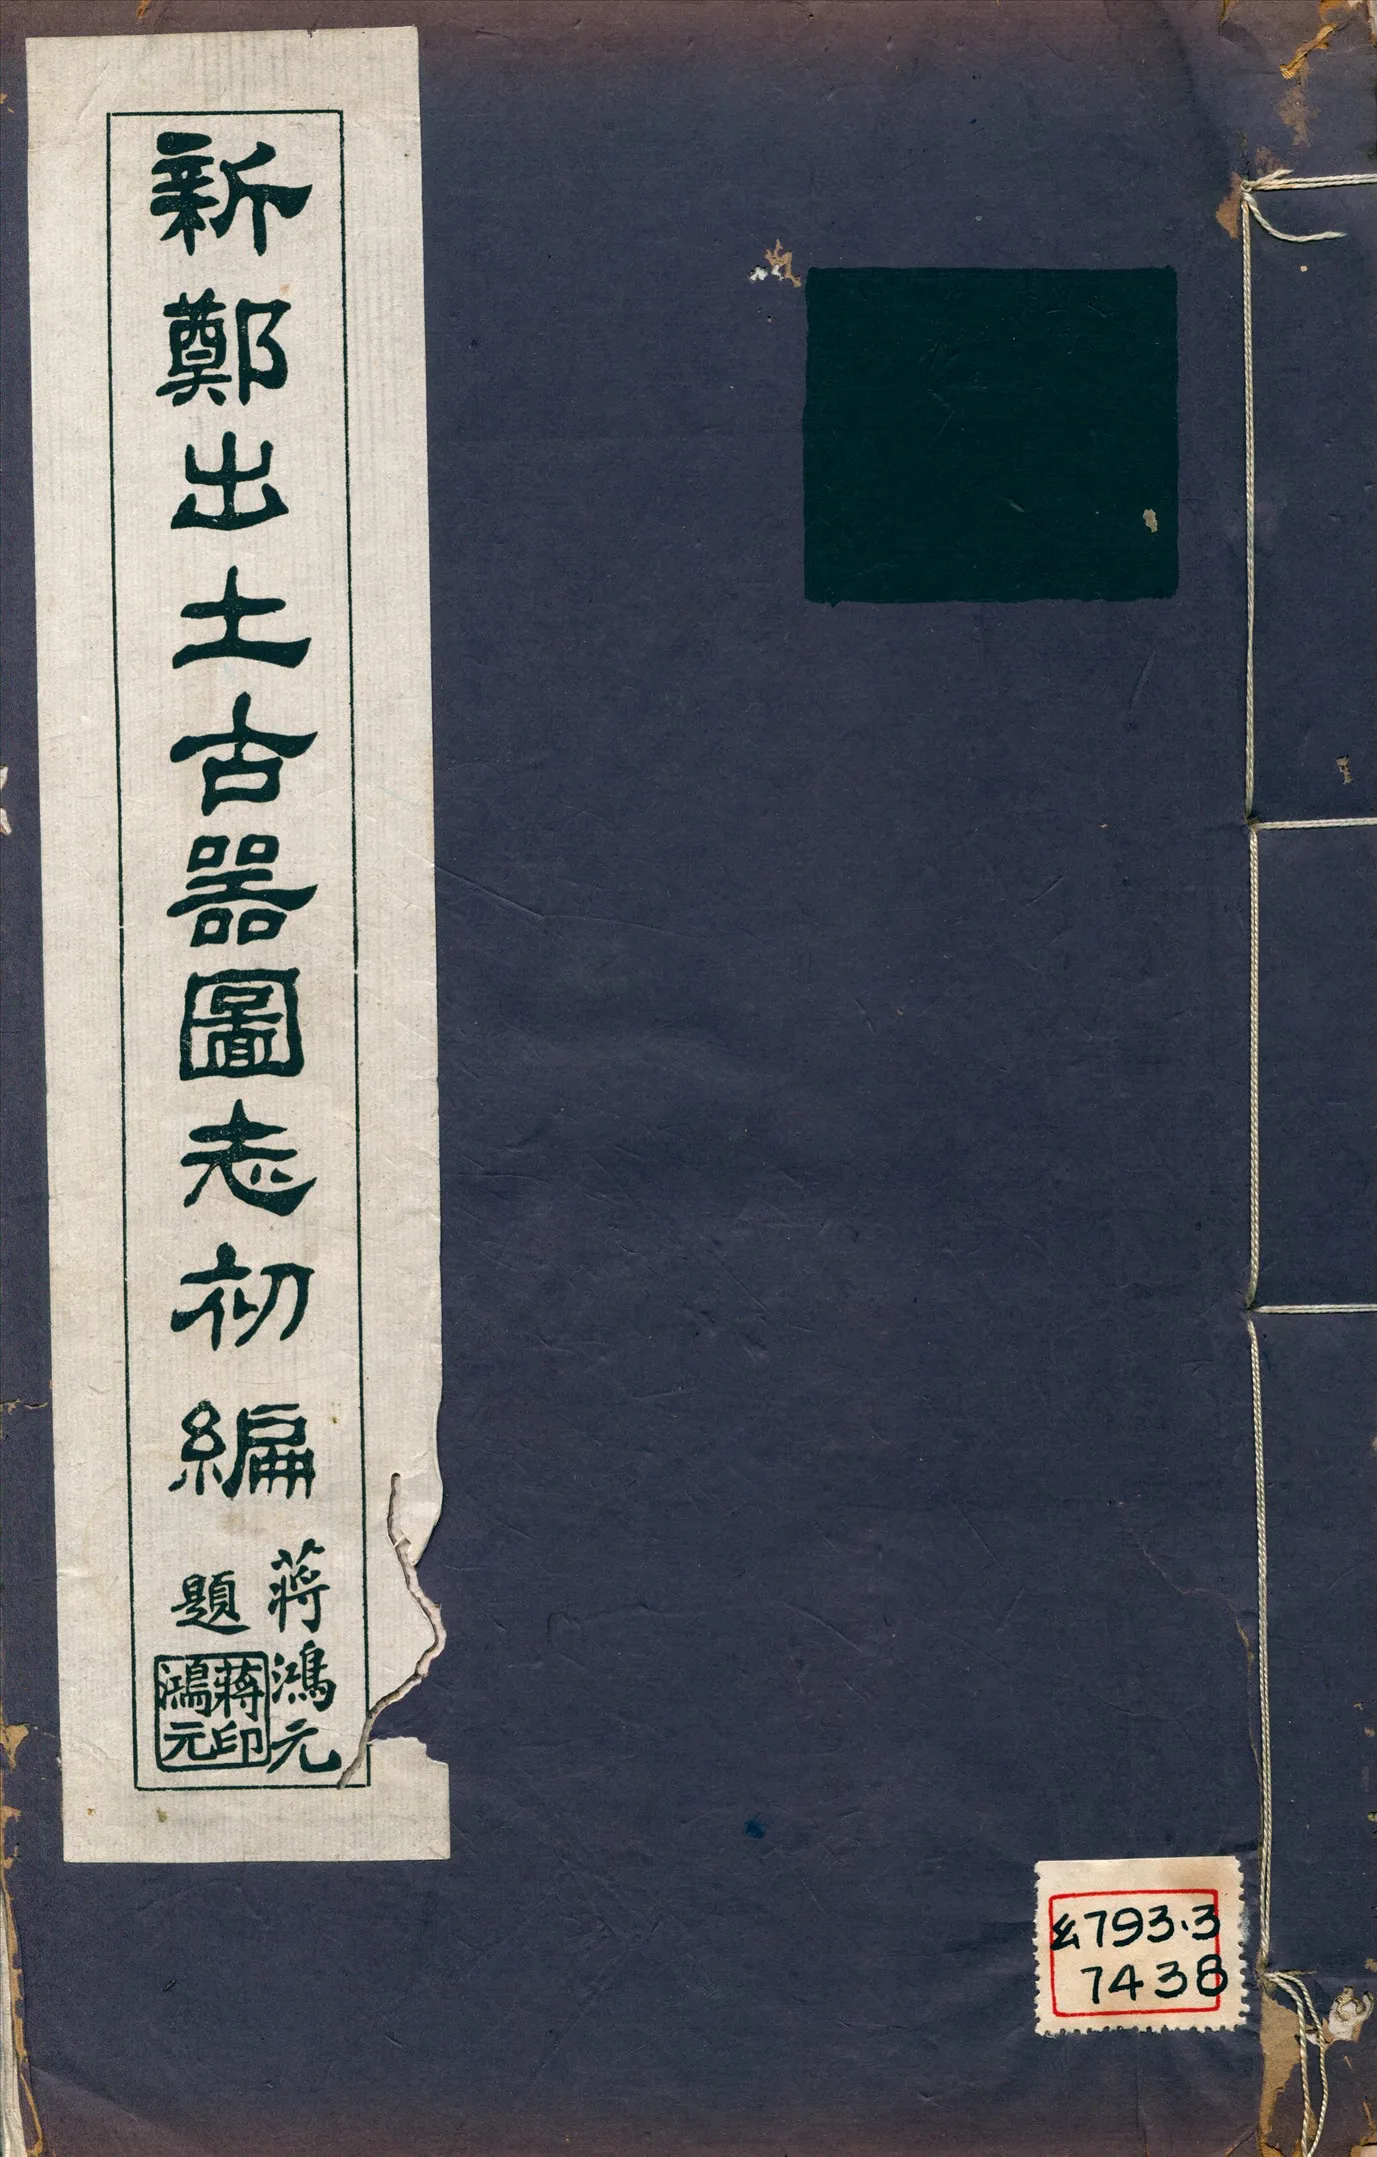 新鄭出土古器圖志初編
蔣鴻元
題
蔣印
鴻元
幺793.3
7438